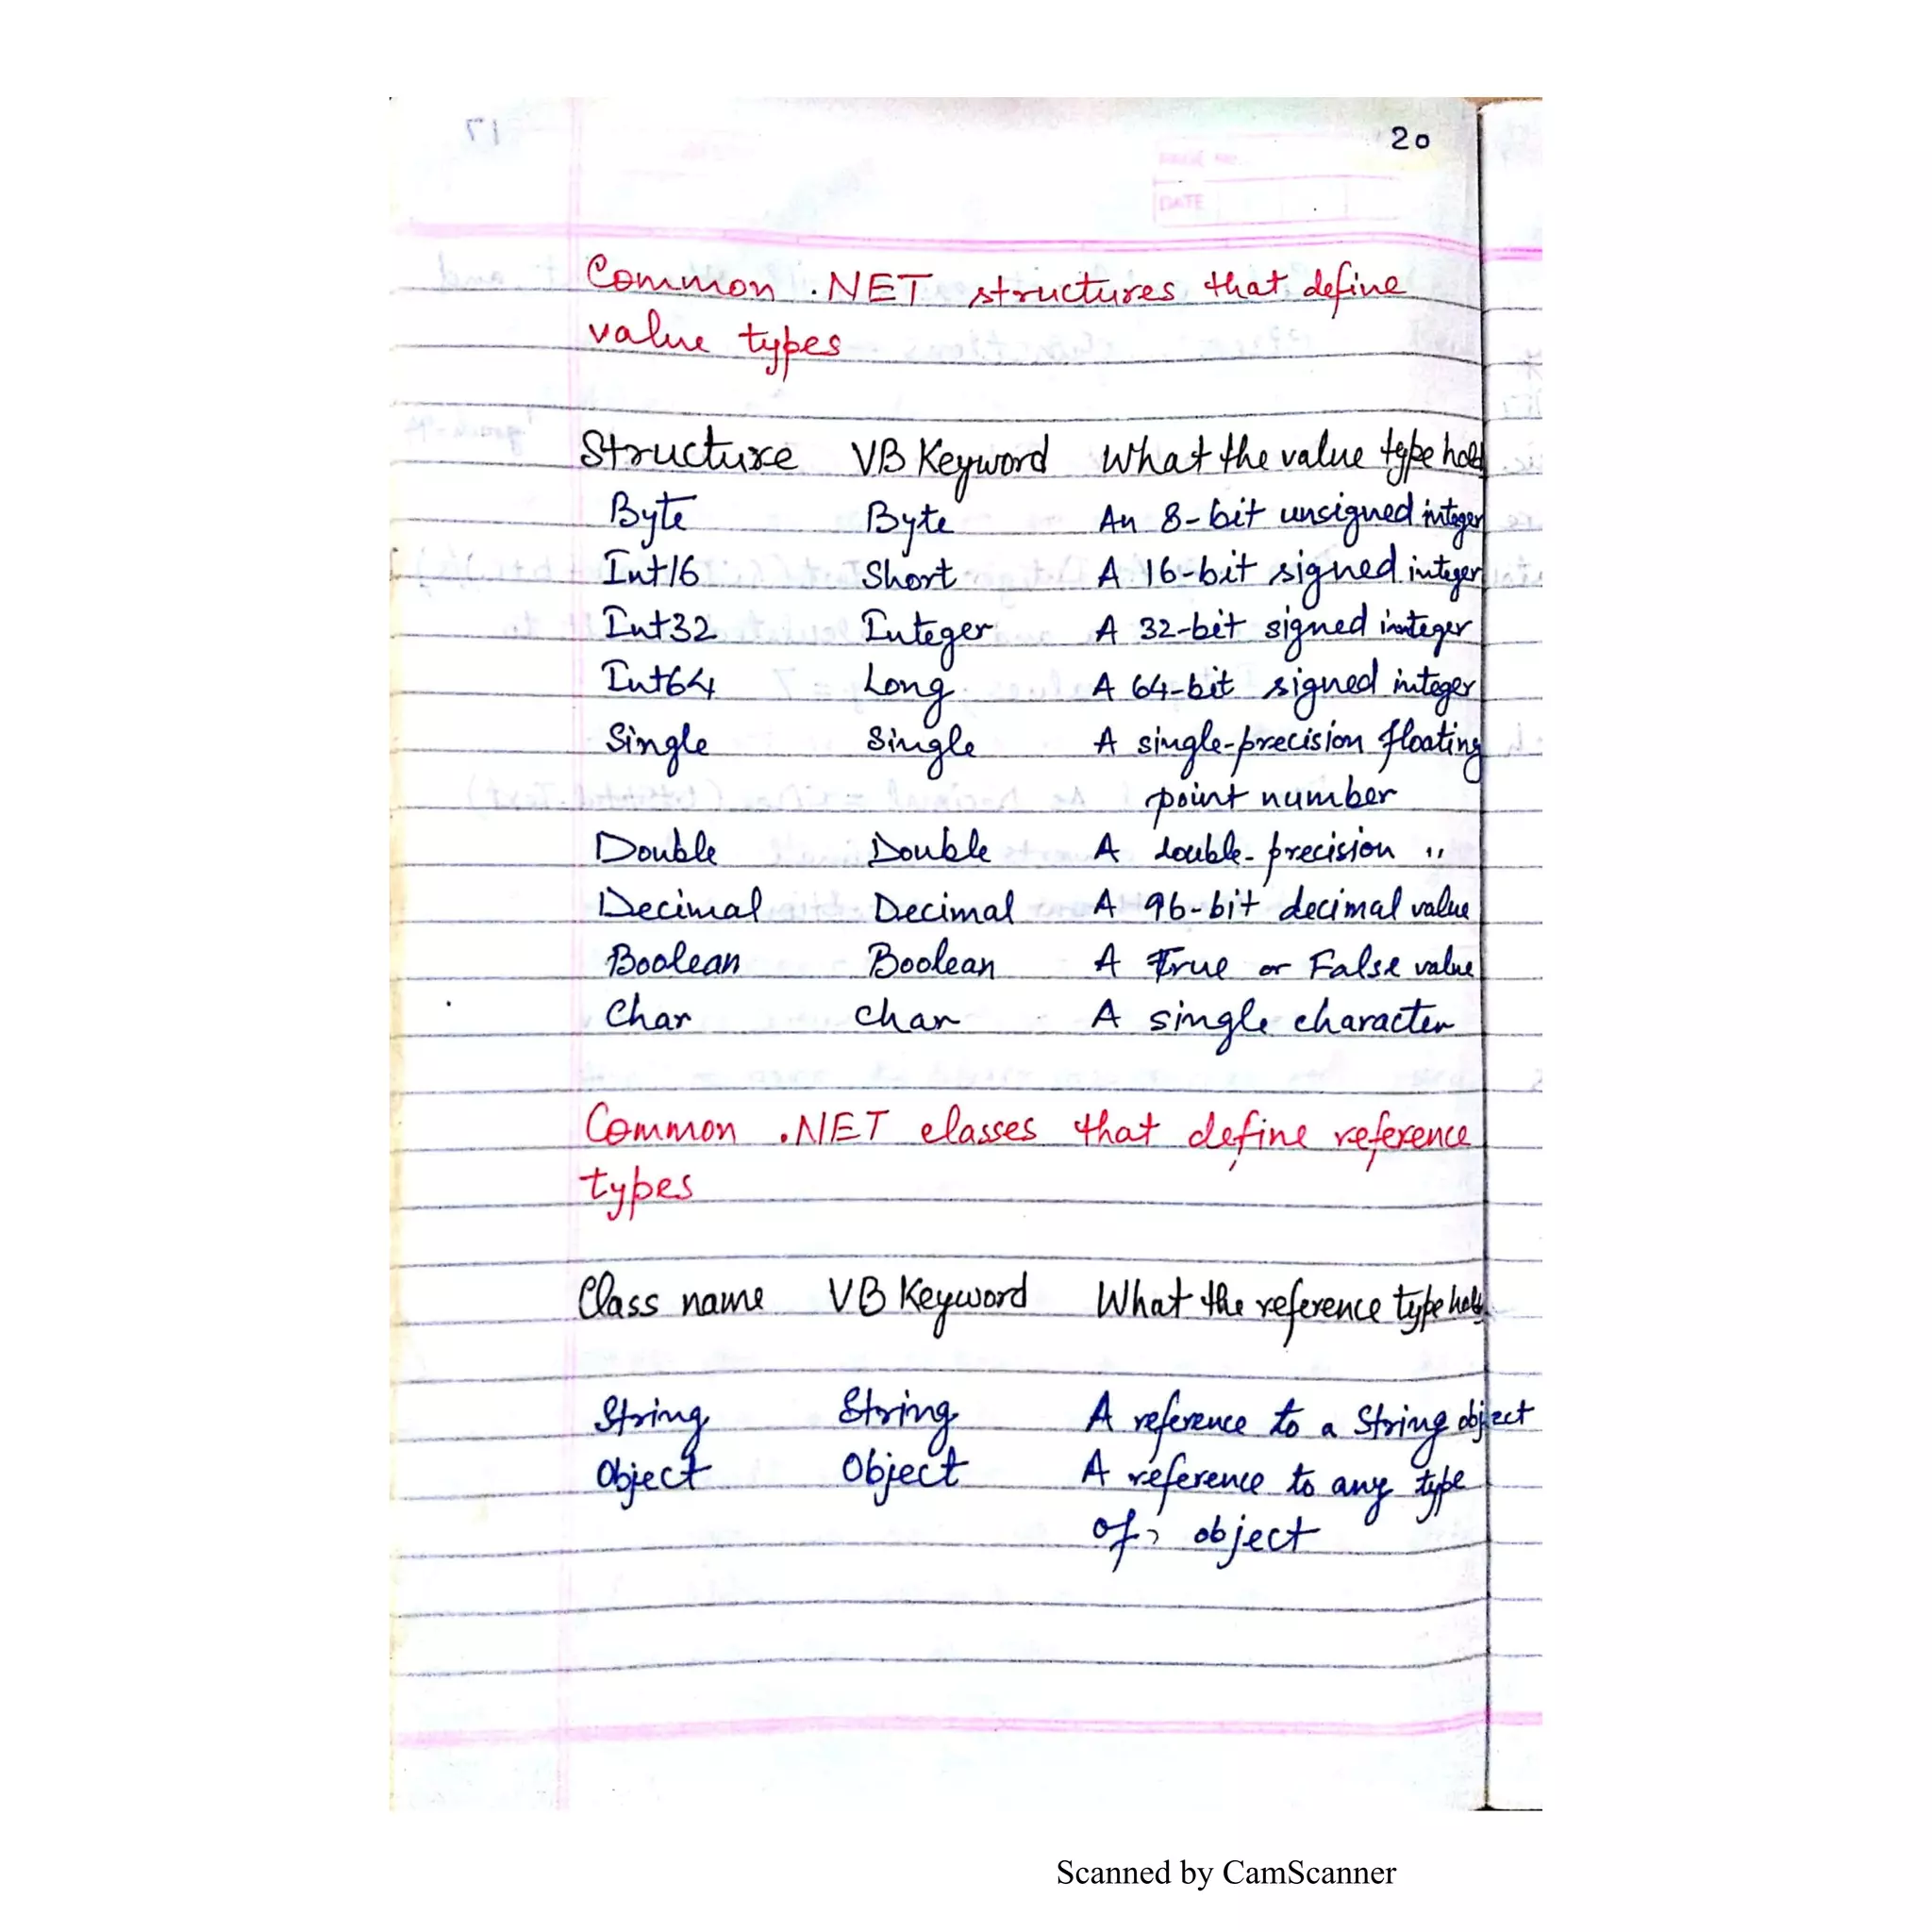 20
PAGE NO.
DATE
Common .NET structures that define
value types
Structure VB Keyword What the value type hold
Byte Byte An 8-bit unsigned integer
Int16 Short A 16-bit signed integer
Int32 Integer A 32-bit signed integer
Int64 Long A 64-bit signed integer
Single Single A single-precision floating
point number
Double Double A double-precision "
Decimal Decimal A 96-bit decimal value
Boolean Boolean A True or False value
Char char A single character
Common .NET classes that define reference
types
Class name VB Keyword What the reference type holds
String String A reference to a String object
Object Object A reference to any type
of object
Scanned by CamScanner